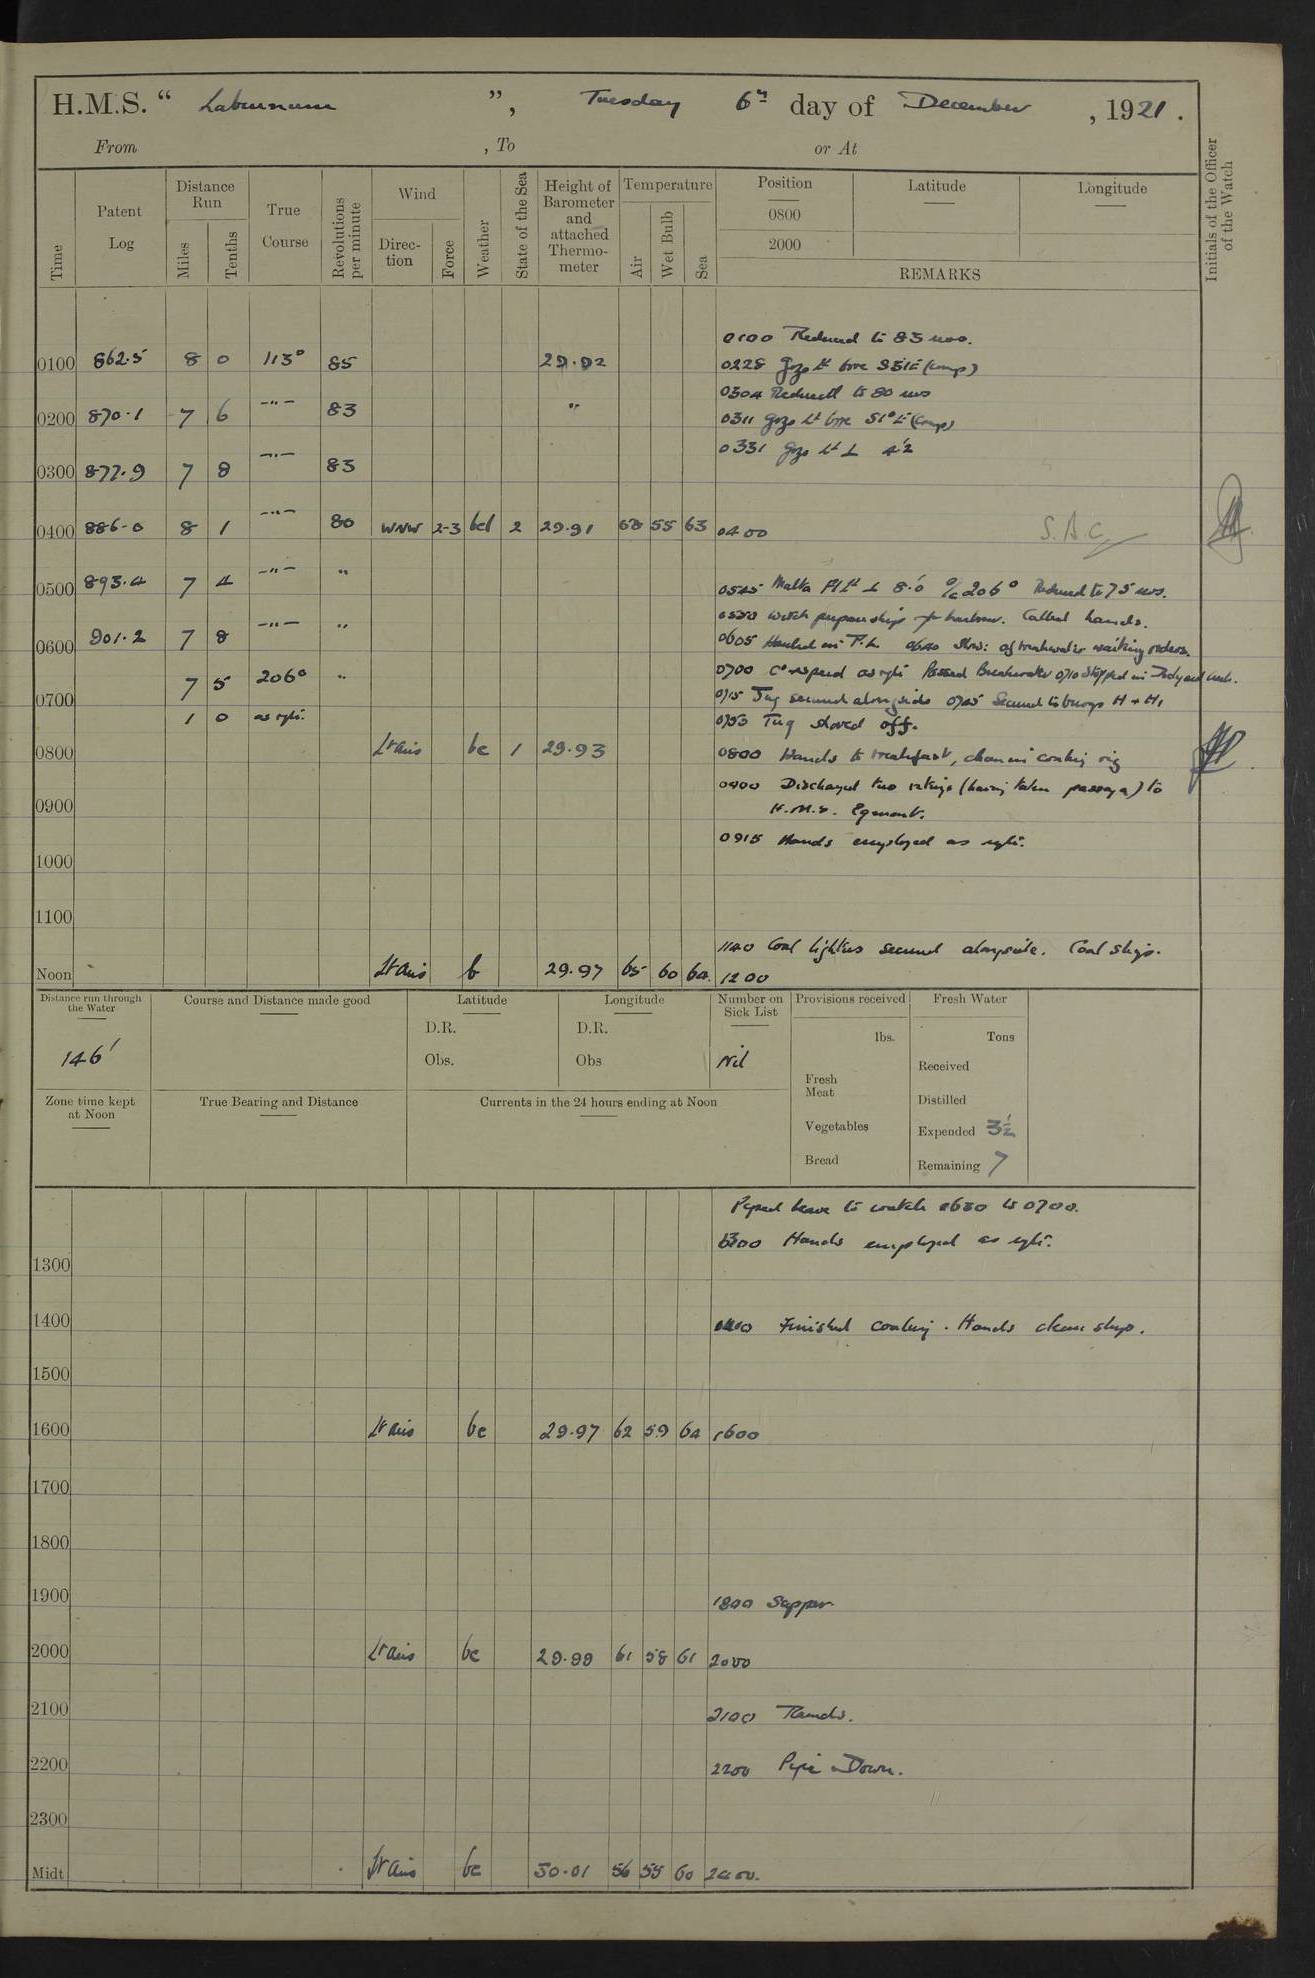 H.M.S. “ Laburnum ”, Tuesday 6th day of December, 1921.
From , To or At
Time
Patent Log
Distance Run
Miles
Tenths
True Course
Revolutions per minute
Wind
Direc-tion
Force
Weather
State of the Sea
Height of Barometer and attached Thermo-meter
Temperature
Air
Wet Bulb
Sea
Position
0800
2000
Latitude
Longitude
REMARKS
Initials of the Officer of the Watch
0100 Reduced to 83 revs.
0100 862.5 8 0 113° 85 29.92
0228 Gozo Lt bore S51E (comp)
0304 Reduced to 80 revs
0200 870.1 7 6 –"– 83 "
0311 Gozo Lt bore S1°E (comp)
0331 Gozo Lt ⊥ 4'2
0300 877.9 7 8 –"– 83
0400 886.0 8 1 –"– 80 WNW 2-3 bcl 2 29.91 58 55 63 0400 S.A.C.
0500 893.4 7 4 –"– "
0545 Malta Lt ⊥ 8.'0 a/c 206° Reduced to 75 revs.
0550 Watch prepare ship for harbour. Called hands.
0600 901.2 7 8 –"– "
0605 Hauled in P.L. 0640 Slow: off breakwater waiting orders.
0700 7 5 206° "
0700 Co & speed as req. Passed Breakwater 0710 Stopped in Dockyard creek.
0715 Tug secured alongside 0745 Secured to buoys H + H1
1 0 as req.
0753 Tug shoved off.
0800 Lt airs bc 1 29.93 0800 Hands to breakfast, clean in coaling rig
0900 0900 Discharged two ratings (having taken passage) to
H.M.S. Egmont.
0915 Hands employed as req.
1000
1100
1140 Coal lighters secured alongside. Coal ship.
Noon Lt airs b 29.97 65 60 64 1200
Distance run through the Water
146'
Course and Distance made good
Latitude
D.R.
Obs.
Longitude
D.R.
Obs
Number on Sick List
Nil
Provisions received
lbs.
Fresh Meat
Vegetables
Bread
Fresh Water
Tons
Received
Distilled
Expended 3½
Remaining 7
Zone time kept at Noon
True Bearing and Distance
Currents in the 24 hours ending at Noon
Piped leave to watch 1630 to 0700.
1300 Hands employed as req.
1300
1400 Finished coaling. Hands clean ship.
1500
1600 Lt airs bc 29.97 62 59 64 1600
1700
1800
1900
1800 Supper
2000 Lt airs bc 29.99 61 58 61 2000
2100 2100 Rounds.
2200 2200 Pipe Down.
2300
Midt Lt airs bc 30.01 56 55 60 2400.